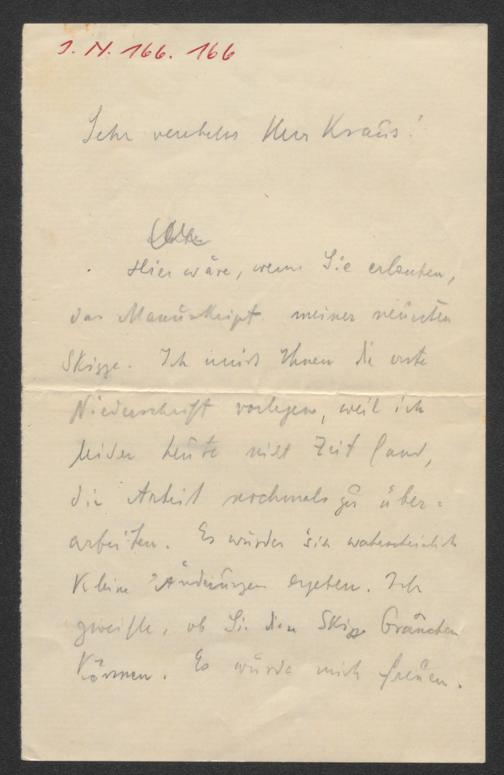 I. N. 166. 166
Sehr verehrter Herr Kraus!
Hier wäre, wenn Sie erlauben,
das Manuskript meiner neuesten
Skizze. Ich muß Ihnen die erste
Niederschrift vorlegen, weil ich
leider heute nicht Zeit fand,
die Arbeit nochmals zu über-
arbeiten. Es würden sich wahrscheinlich
kleine Änderungen ergeben. Ich
zweifle, ob Sie die Skizze brauchen
können. Es würde mich freuen.